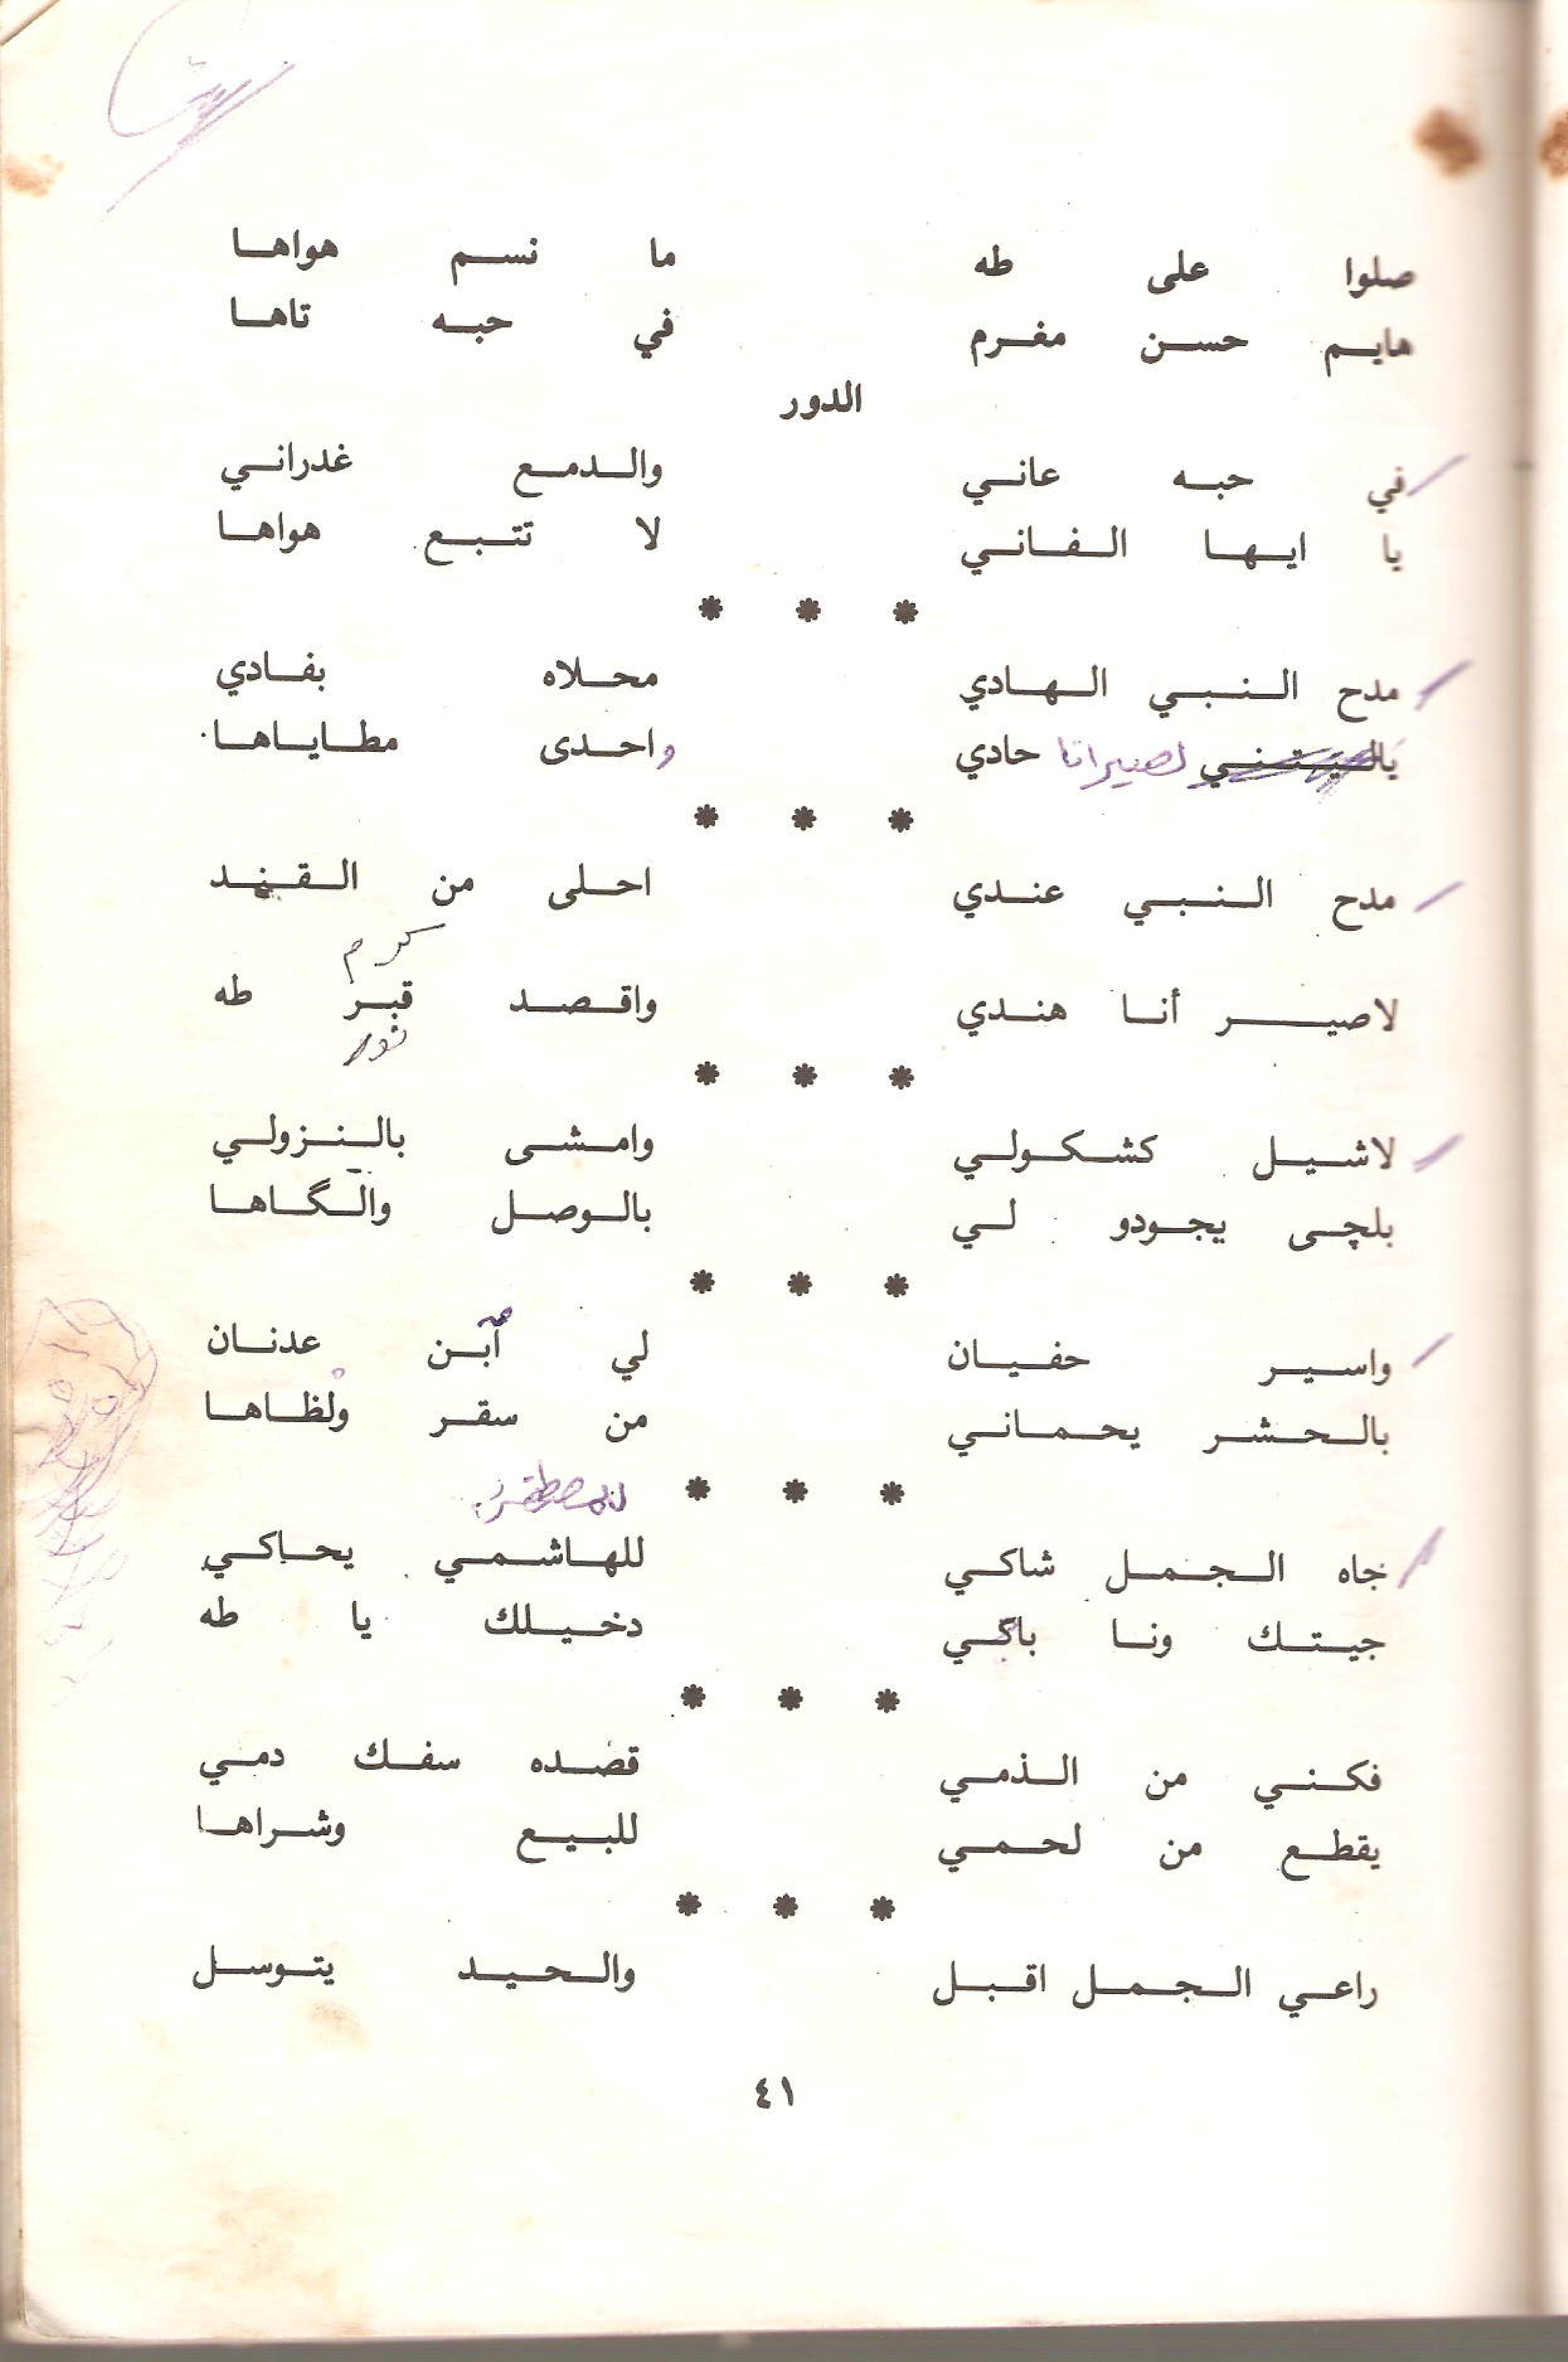 صلوا على طه ما نسم هواها
هايم حسن مغرم في حبه تاها
الدور
في حبه عاني والدمع غدراني
يا ايها الفاني لا تتبع هواها
* * *
مدح النبي الهادي محلاه بفادي
ياليتني لصير انا حادي واحدى مطاياها
* * *
مدح النبي عندي احلى من القند
كرم
لاصير أنا هندي واقصد قبر طه
نور
* * *
لاشيل كشكولي وامشى بالنزولي
بلچى يجودو لي بالوصل والگاها
* * *
واسير حفيان لي آبن عدنان
بالحشر يحماني من سقر ولظاها
* * *
للمصطفى
جاه الجمل شاكي للهاشمي يحاكي
جيتك ونا باكي دخيلك يا طه
* * *
فكني من الذمي قصده سفك دمي
يقطع من لحمي للبيع وشراها
* * *
راعي الجمل اقبل والحيد يتوسل
٤١